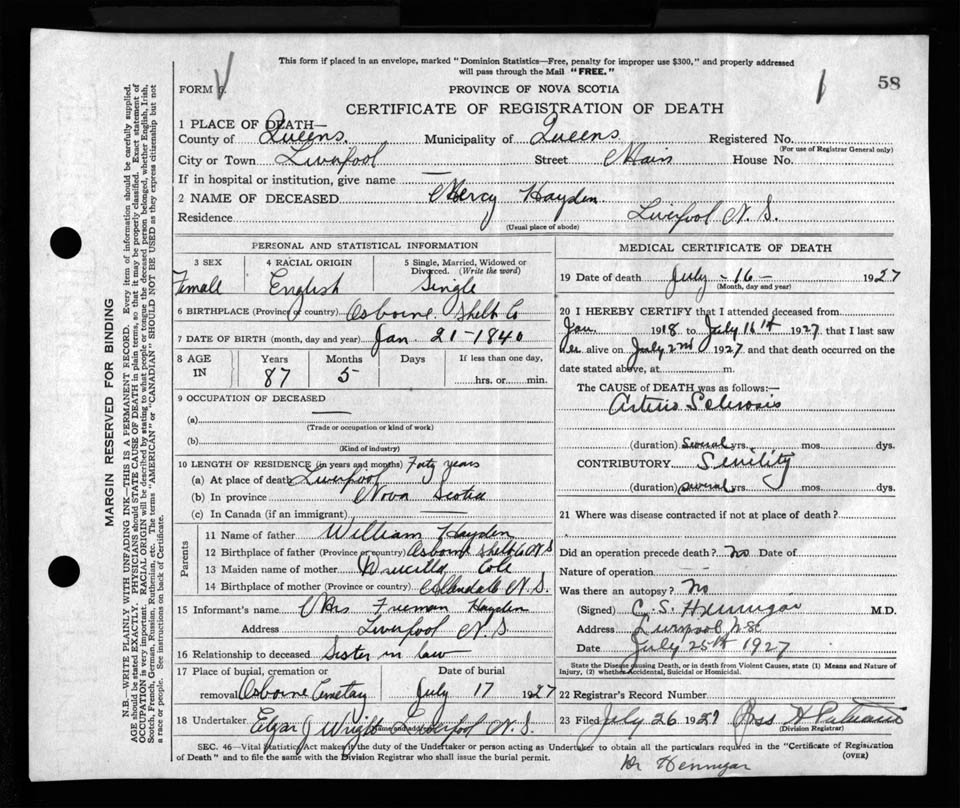 This form if placed in an envelope, marked "Dominion Statistics—Free, penalty for improper use $300," and properly addressed
will pass through the Mail "FREE."
FORM 6. PROVINCE OF NOVA SCOTIA 58
CERTIFICATE OF REGISTRATION OF DEATH
1 PLACE OF DEATH—
County of Queens. Municipality of Queens Registered No.
(For use of Registrar General only)
City or Town Liverpool Street Main House No.
If in hospital or institution, give name —
2 NAME OF DECEASED Mercy Hayden
Residence Liverpool N. S.
(Usual place of abode)
PERSONAL AND STATISTICAL INFORMATION
3 SEX 4 RACIAL ORIGIN 5 Single, Married, Widowed or Divorced. (Write the word)
Female English Single
6 BIRTHPLACE (Province or country) Osborne. Shelb Co
7 DATE OF BIRTH (month, day and year) Jan. 21-1840
8 AGE IN Years Months Days If less than one day,
87 5 hrs. or min.
9 OCCUPATION OF DECEASED
(a) —
(Trade or occupation or kind of work)
(b)
(Kind of industry)
10 LENGTH OF RESIDENCE (in years and months) Forty years
(a) At place of death Liverpool
(b) In province Nova Scotia
(c) In Canada (if an immigrant) —
Parents
11 Name of father William Hayden
12 Birthplace of father (Province or country) Osborne Shelb Co N S
13 Maiden name of mother Drucilla Cole
14 Birthplace of mother (Province or country) Allendale N. S.
15 Informant's name Mrs Freeman Hayden
Address Liverpool N S
16 Relationship to deceased Sister in law
17 Place of burial, cremation or removal Date of burial
Osborne Cemetery July 17 1927
18 Undertaker J Wright Liverpool N. S.
(Name and address)
MEDICAL CERTIFICATE OF DEATH
19 Date of death July -16- 1927
(Month, day and year)
20 I HEREBY CERTIFY that I attended deceased from
Jan. 1918 to July 16th 1927 that I last saw
her alive on July 2nd 1927 and that death occurred on the
date stated above, at m.
The CAUSE OF DEATH was as follows:—
Arterio Sclerosis
(duration) several yrs. mos. dys.
CONTRIBUTORY Senility
(duration) several yrs. mos. dys.
21 Where was disease contracted if not at place of death?
Did an operation precede death? no Date of
Nature of operation —
Was there an autopsy? No
(Signed) C. S. Hennigar M.D.
Address Liverpool NS
Date July 25th 1927
State the Disease causing Death, or in death from Violent Causes, state (1) Means and Nature of
Injury, (2) whether Accidental, Suicidal or Homicidal.
22 Registrar's Record Number
23 Filed July 26 1927
(Division Registrar)
SEC. 46—Vital Statistics Act makes it the duty of the Undertaker or person acting as Undertaker to obtain all the particulars required in the "Certificate of Registration
of Death" and to file the same with the Division Registrar who shall issue the burial permit. (OVER)
Dr Hennigar
MARGIN RESERVED FOR BINDING
N.B.—WRITE PLAINLY WITH UNFADING INK—THIS IS A PERMANENT RECORD. Every item of information should be carefully supplied.
AGE should be stated EXACTLY. PHYSICIANS should STATE CAUSE OF DEATH in plain terms, so that it may be properly classified. Exact statement of
OCCUPATION is very important. RACIAL ORIGIN will be described by stating to what people or tongue the deceased person belonged, whether English, Irish,
Scotch, French, German, Russian, Ruthenian, etc. The terms "AMERICAN" or "CANADIAN" SHOULD NOT BE USED as they express citizenship but not
a race or people. See instructions on back of Certificate.